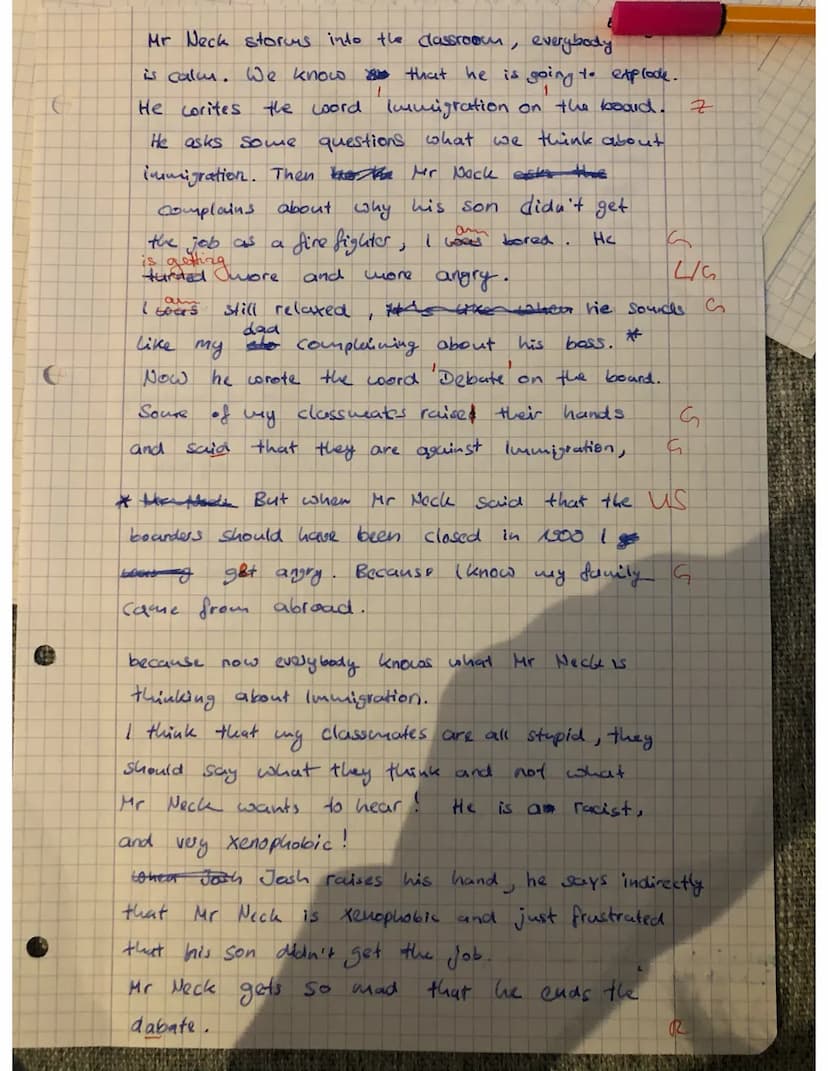 Mr Neck storms into the classroom, everybody
is calm. We know that he is going to explode.
He writes the word 'Immigration on' the board. Z
He asks some questions what we think about
immigration. Then Mr Neck
complains about why his son didn't get
am
the job as a firefighter, I was bored. He G
is getting
turded more and more angry. L/G
am
I was still relaxed, he sounds G
dad
like my complaining about his boss. *
Now he wrote the word 'Debate' on the board.
Some of my classmates raised their hands G
and said that they are against Immigration, G
* But when Mr Neck said that the US
boarders should have been closed in 1900 I
get angry. Because I know my family G
came from abroad.
because now everybody knows what Mr Neck is
thinking about Immigration.
I think that my classmates are all stupid, they
should say what they think and not what
Mr Neck wants to hear! He is racist,
and very xenophobic!
When Josh Josh raises his hand, he says indirectly
that Mr Neck is xenophobic and just frustrated
that his son didn't get the job.
Mr Neck gets so mad that he ends the
dabate. R